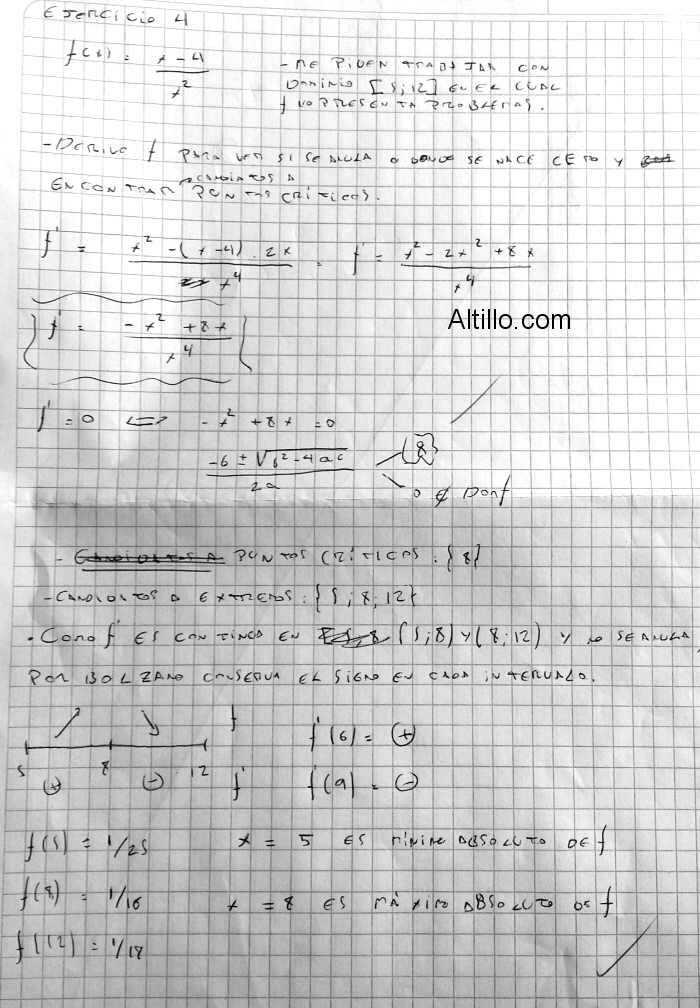 EJERCICIO 4
f(x) = x - 4 / x²
- ME PIDEN TRABAJAR CON
DOMINIO [5;12] EN EL CUAL
f NO PRESENTA PROBLEMAS.
- DERIVO f PARA VER SI SE ANULA O DONDE SE HACE CERO Y
CANDIDATOS A
ENCONTRAR PUNTOS CRÍTICOS.
f' = x² - (x - 4) . 2x / x⁴ = f' = x² - 2x² + 8x / x⁴
Altillo.com
f' = - x² + 8x / x⁴
f' = 0 <=> - x² + 8x = 0
-b ± √b² - 4ac / 2a
{8}
0 ∉ Domf
- CANDIDATOS A PUNTOS CRÍTICOS : {8}
- CANDIDATOS A EXTREMOS : {5; 8; 12}
• COMO f' ES CONTINUA EN (5;8) Y (8;12) Y NO SE ANULA,
POR BOLZANO CONSERVA EL SIGNO EN CADA INTERVALO.
↗ ↘ f f'(6) = +
5 8 12
+ - f' f'(9) = -
f(5) = 1/25 x = 5 ES MÍNIMO ABSOLUTO DE f
f(8) = 1/16 x = 8 ES MÁXIMO ABSOLUTO DE f
f(12) = 1/18